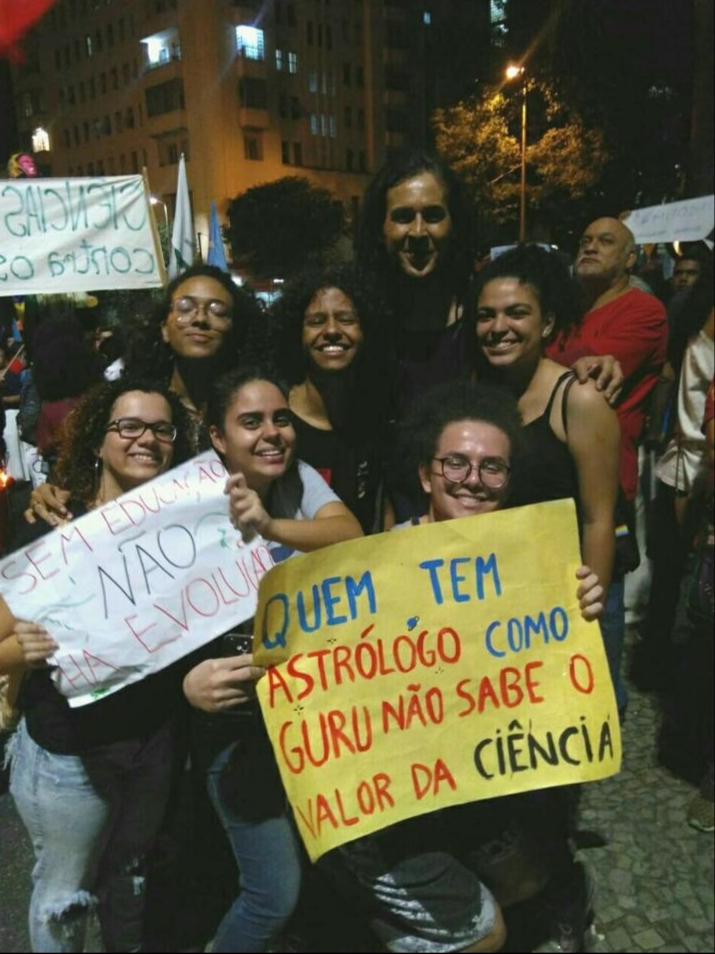 CIÊNCIAS
contra os
SEM EDUCAÇÃO
NÃO
HÁ EVOLUÇÃO
QUEM TEM
ASTRÓLOGO COMO
GURU NÃO SABE O
VALOR DA CIÊNCIA